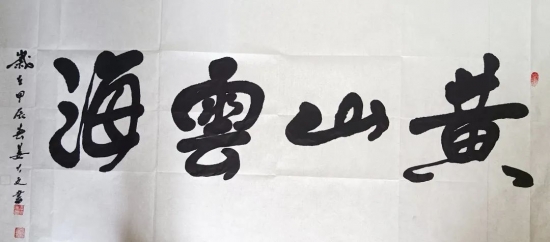 黄山雲海
歲在甲辰春姜大文書